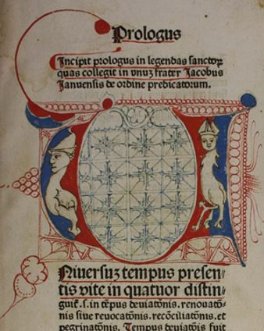 Prologus
Incipit prologus in legendas sanctoꝝ
quas collegit in vnuȝ frater Iacobus
Ianuensis de ordine predicatorum.
Niuersuȝ tempus presen⸗
tis vite in quatuor distin⸗
guit̃. s. in tẽpus deuiatõnis. renouatõ⸗
nis siue reuocatõnis. recõciliatõnis. et
pegrinatõnis. Tempus deuiatõis fuit